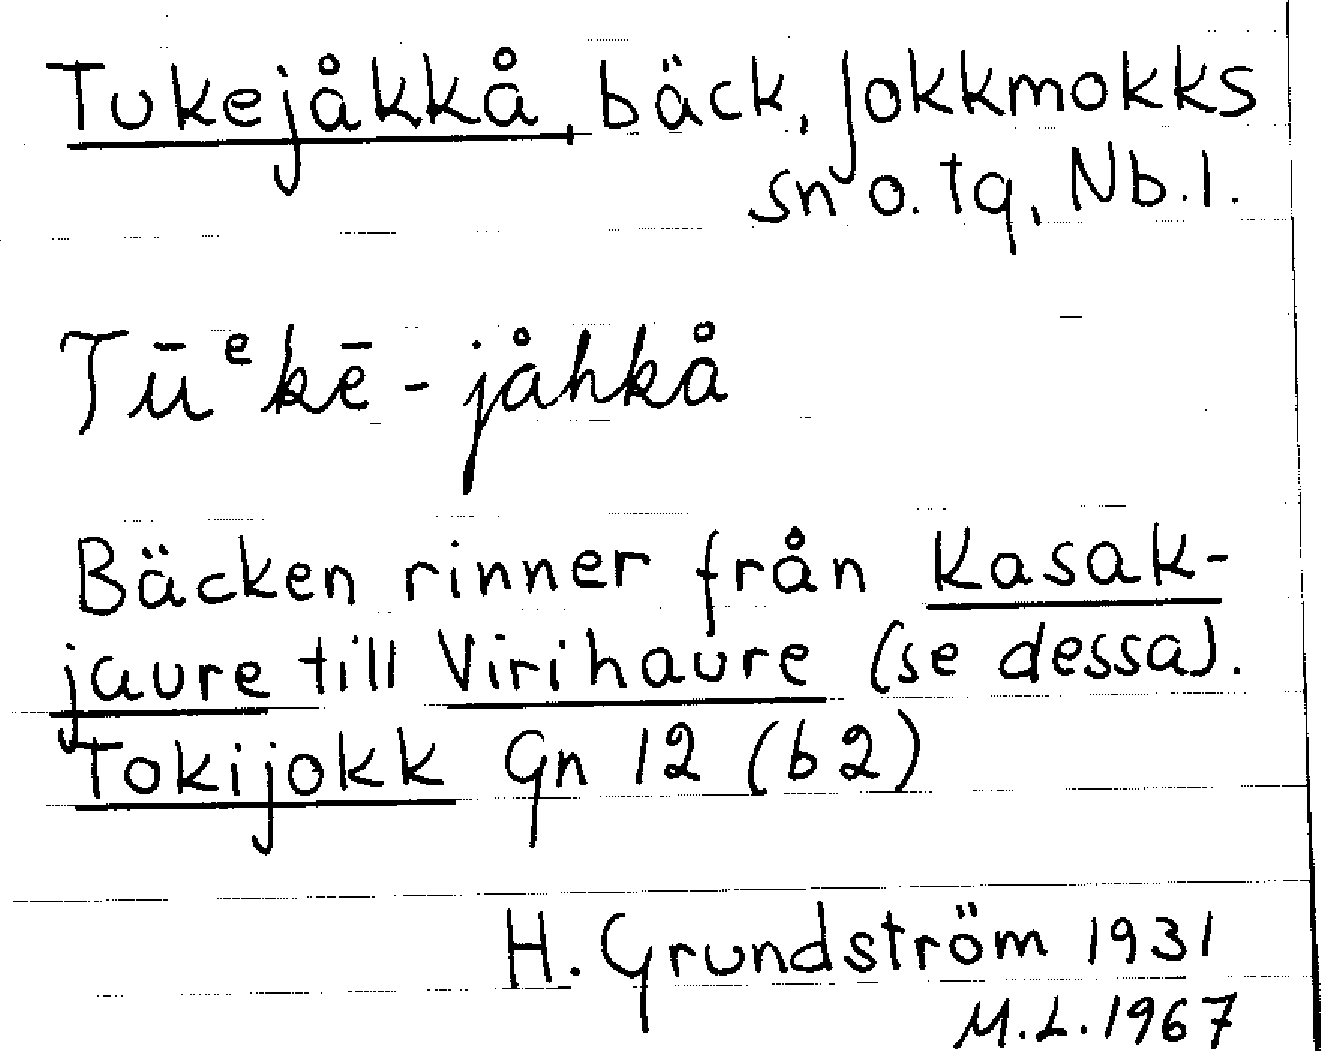 Tukejåkkå, bäck, Jokkmokks
sn o. tg, Nb.l.
Tūᵉkē-jåhkå
Bäcken rinner från Kasak-
jaure till Virihaure (se dessa).
Tokijokk Gn 12 (b2)
H. Grundström 1931
M.L. 1967